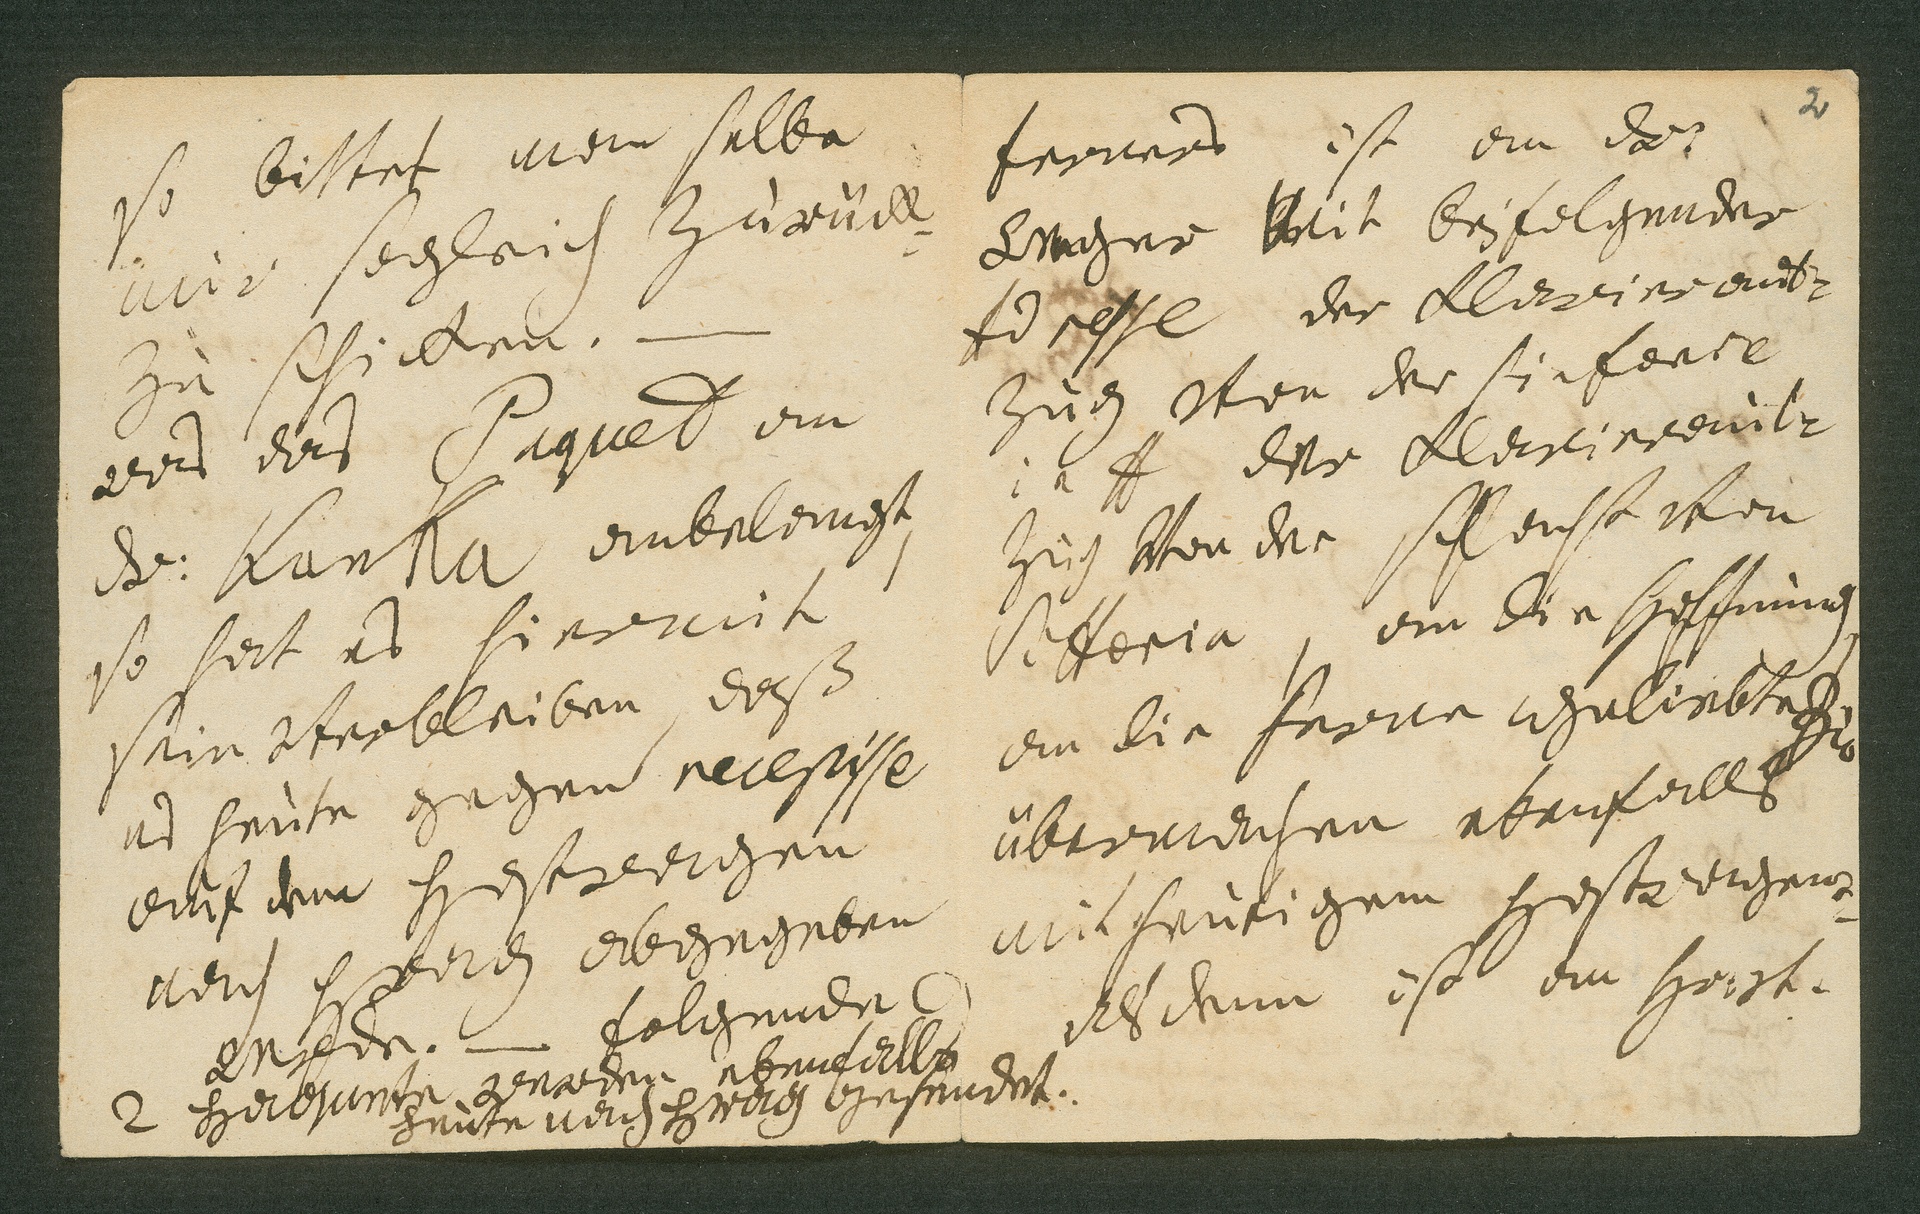 so bittet man selbe
mir sogleich zurück-
zu schicken. —
was das Paquet an
Dr: Kanka anbelangt,
so hat es hiermit
sein Verbleiben, daß
es heute gegen recepisse
auf dem Postwagen
nach Prag abgegeben
werde. — folgende
2 Packete werden ebenfalls
heute nach Prag gesendet.
2
ferners ist an der
Wegen Mit beyfolgender
Adresse der Klavierausz
zug Von der Sinfonie
in A der Klavierausz
zug Von der schlacht Von
Vittoria, an die Hofnung,
an die ferne geliebte zu
übermachen ebenfalls
mit heutigem Postwagen
alsdann ist an